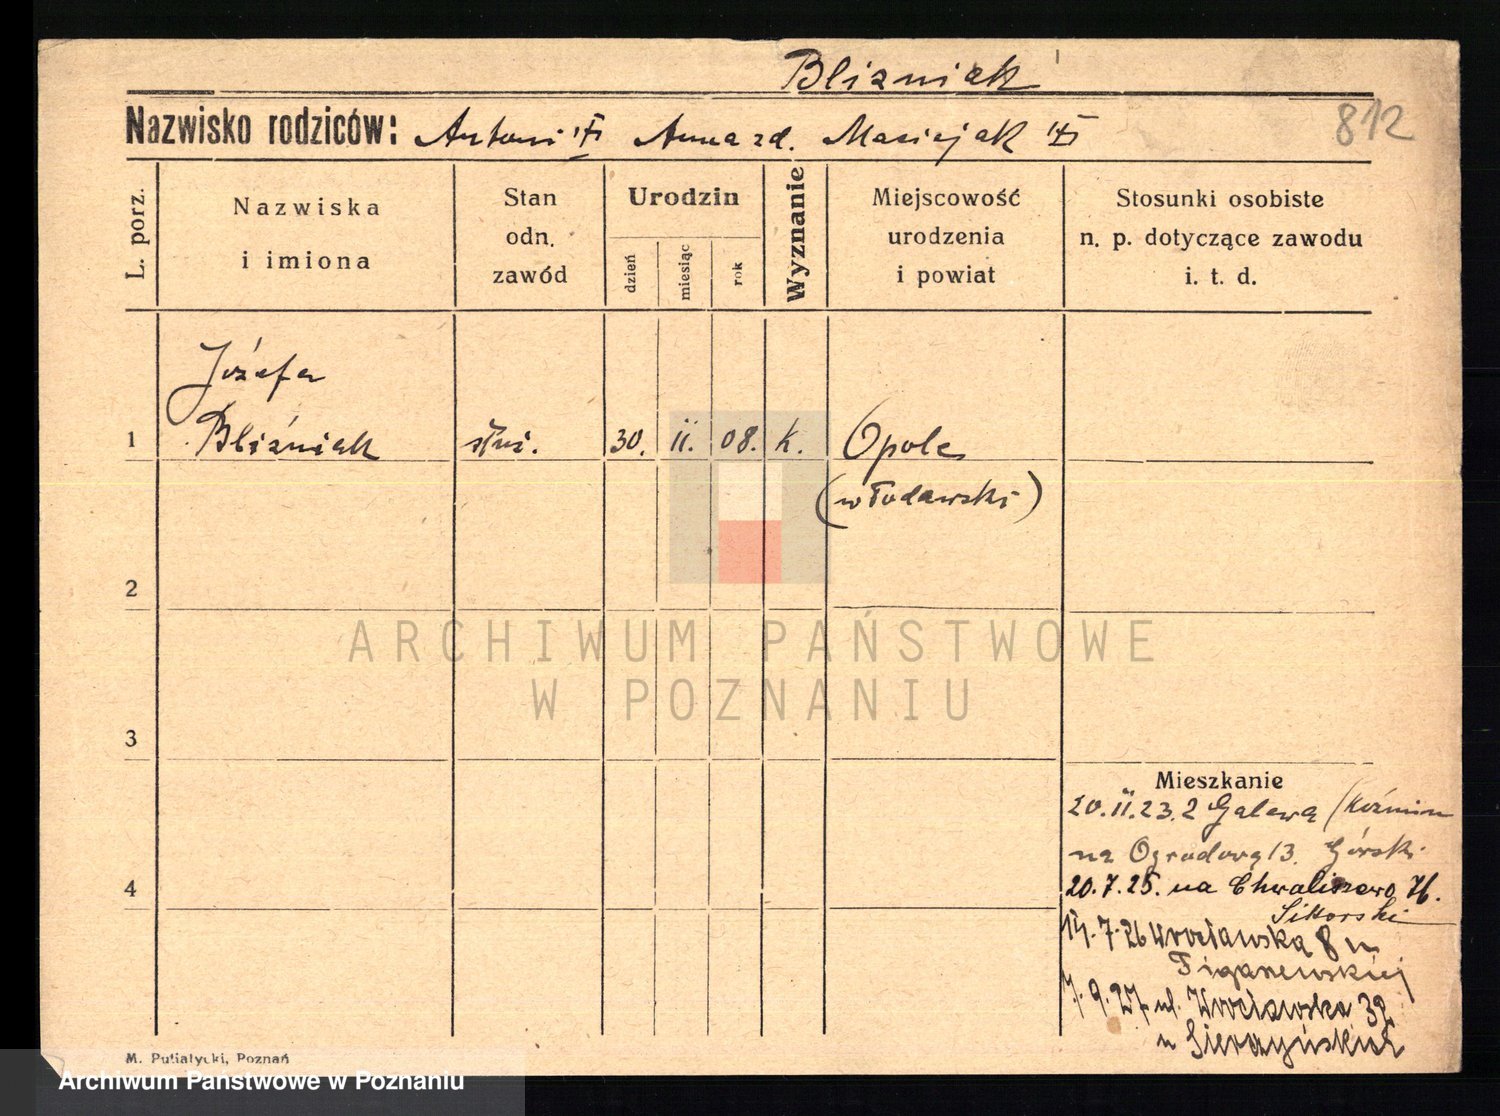 Bliźniak
812
Nazwisko rodziców: Antoni Anna zd. Maciejak
L. porz.
Nazwiska i imiona
Stan odn. zawód
Urodzin
dzień
miesiąc
rok
Wyznanie
Miejscowość urodzenia i powiat
Stosunki osobiste n. p. dotyczące zawodu i. t. d.
Józefa
1 Bliźniak służ. 30. II. 08. k. Opole
(włodawski)
2
ARCHIWUM PAŃSTWOWE
W POZNANIU
3
Mieszkanie
20.II.23. z Galewa (Koźmin
na Ogrodową 13. Górski
4
20.7.25. na Chwaliszewo 76.
Sikorski
14.7.26 Wrocławska 8 u
7.9.27. ul. Wrocławska 32
u
M. Putiatycki, Poznań
Archiwum Państwowe w Poznaniu